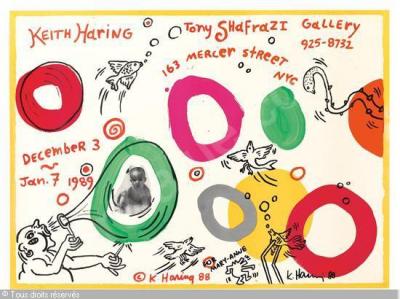 KEITH HARING
TONY SHAFRAZI GALLERY
925-8732
163 MERCER STREET
NYC
DECEMBER 3
~
Jan. 7 1989
© K Haring 88
MARY-ANNE
K Haring 88
© Tous droits réservés